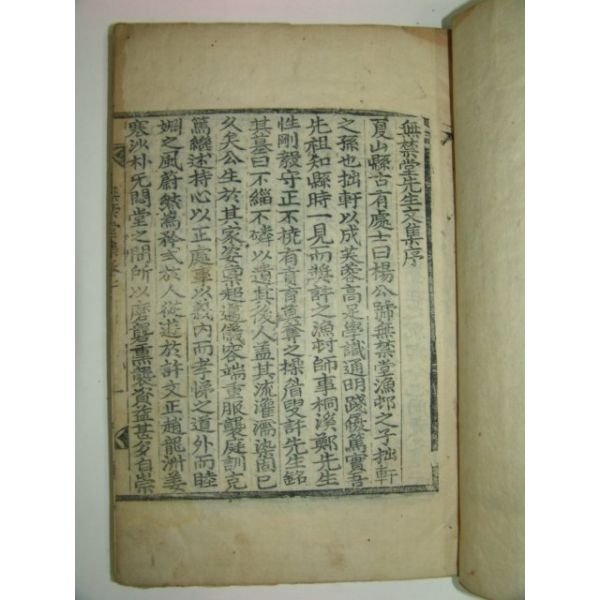 無禁堂先生文集序
夏山縣古有處士曰楊公號無禁堂漁邨之子拙軒
之孫也拙軒以成芙蓉高足學識通明踐優篤實吾
先祖知縣時一見而奬許之漁村師事桐溪鄭先生
性剛毅守正不撓有賁育莫奪之操眉叟許先生銘
其墓曰不緇不磷以遺其後人盖其流灌濡染固已
久矣公生於其家姿稟超邁儀容端重服襲庭訓克
篤繼述持心以正處事以義內而孝悌之道外而睦
婣之風蔚然爲矜式族人從遊於許文正趙龍洲姜
寒沙朴无悶堂之間所以磨礱薰襲資益甚多自崇
無禁堂集卷之